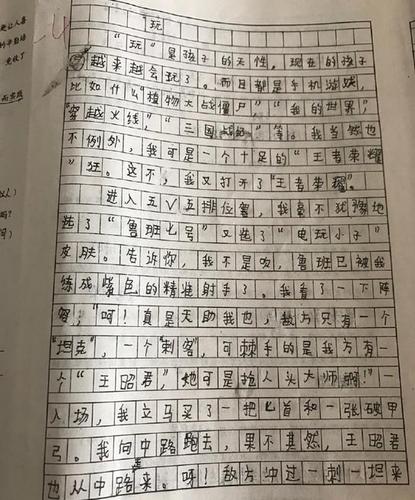 "玩"
"玩"是孩子的天性,现在的孩子
越来越会玩了。而且都是手机游戏,
比如什么"植物大战僵尸""我的世界"
"穿越火线","三国"等。我当然也
不例外,我可是一个十足的"王者荣耀
"狂。这不,我又打开了"王者荣耀"。
进入五V五排位赛,我毫不犹豫地
选了"鲁班七号"又选了"电玩小子"
皮肤。告诉你,我不是吹,鲁班已被我
练成紫色的精准射手了。我看了一下阵
容,"呵!真是天助我也,敌方只有一个
"坦克",一个"刺客",可棘手的是我方有一
个"王昭君",她可是抢人头大师啊!"一
入场,我立马买了一把匕首和一张破甲
弓。我向中路跑去,果不其然,王昭君
也从中路来。呀!敌方冲过一刺一坦来
更让人喜